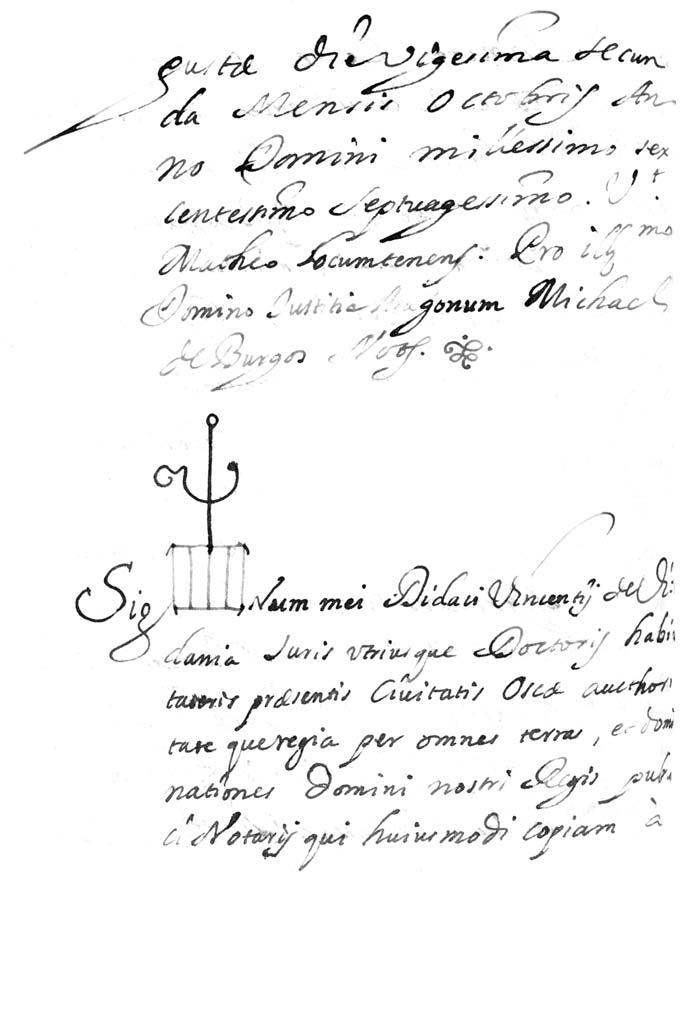 gustæ die vigesima secun
da Mensis Octobris An
no Domini millessimo sex
centessimo septuagessimo. Vt.
Matheo Locumtenens: Pro illmo
Domino Justitia Aragonum Michael
de Burgos Nots.
Sig Num mei Didaci Vincentij de Vi
dania Juris vtriusque Doctoris habi
tatoris præsentis Ciuitatis Oscæ aucthori
tate que regia per omnes terras, et domi
nationes Domini nostri Regis publi
ci Notarij qui huiusmodi copiam à